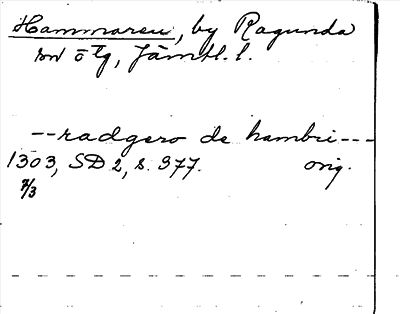 Hammaren, by Ragunda
sn ö tg, Jämtl. l.
--radgero de hambri---
1303, SD 2, s. 377. orig.
7/3